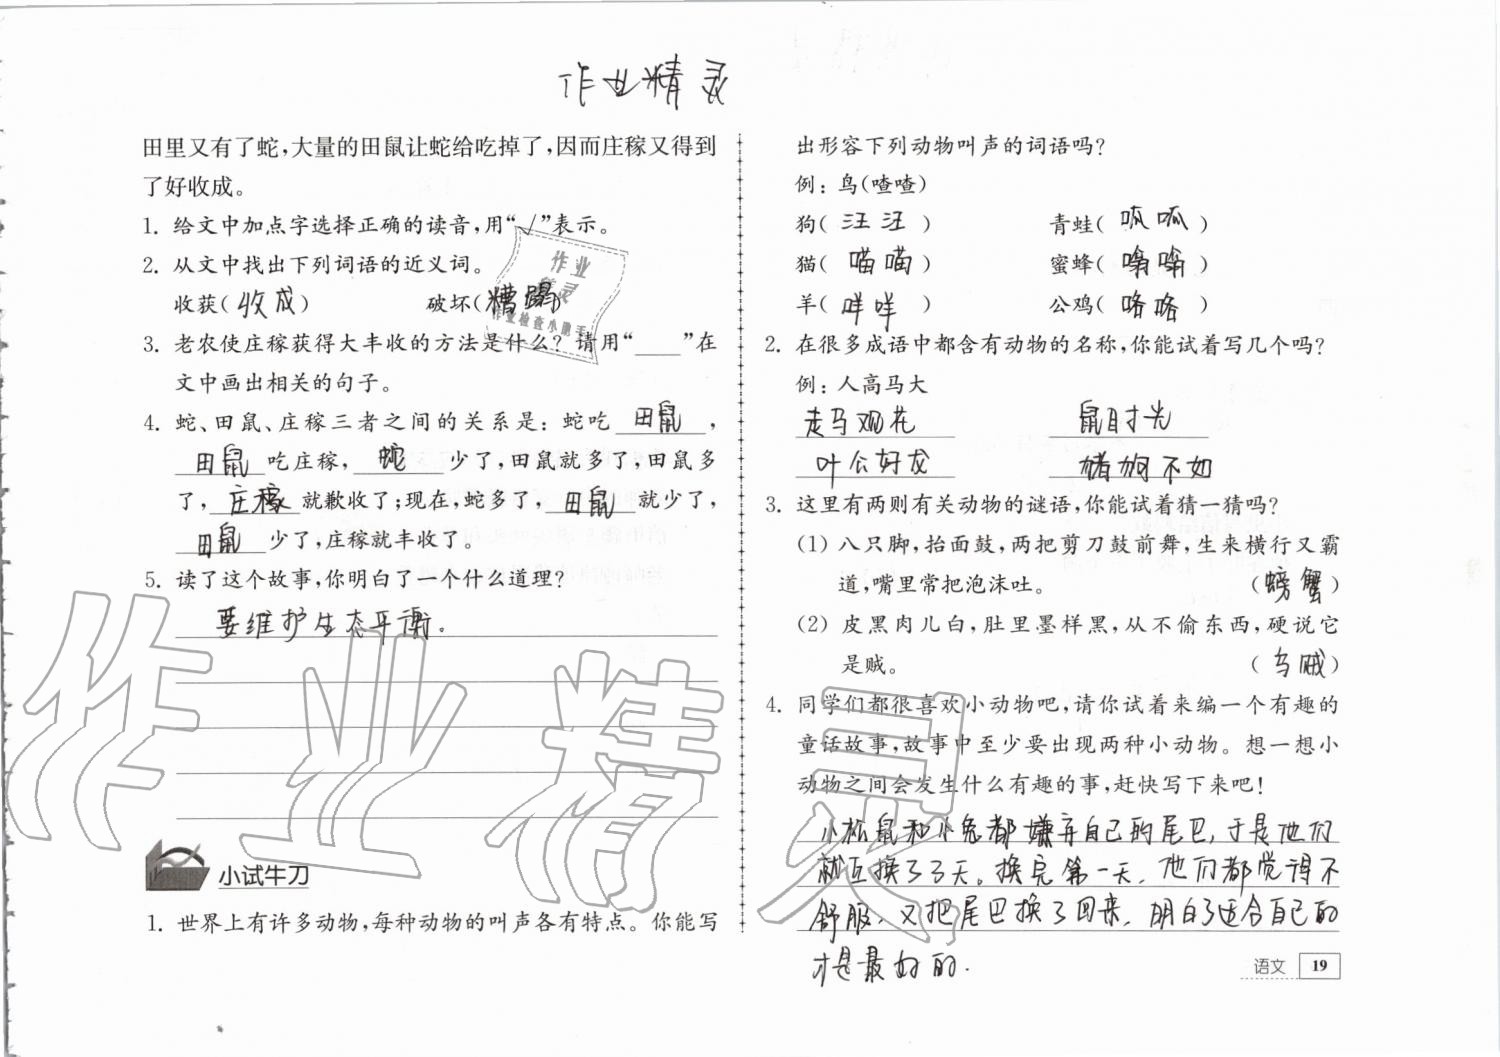 作业精灵
田里又有了蛇，大量的田鼠让蛇给吃掉了，因而庄稼又得到
了好收成。
1. 给文中加点字选择正确的读音，用“√”表示。
2. 从文中找出下列词语的近义词。
收获（收成） 破坏（糟蹋）
3. 老农使庄稼获得大丰收的方法是什么？请用“____”在
文中画出相关的句子。
4. 蛇、田鼠、庄稼三者之间的关系是：蛇吃田鼠，
田鼠吃庄稼，蛇少了，田鼠就多了，田鼠多
了，庄稼就歉收了；现在，蛇多了，田鼠就少了，
田鼠少了，庄稼就丰收了。
5. 读了这个故事，你明白了一个什么道理？
要维护生态平衡.
小试牛刀
1. 世界上有许多动物，每种动物的叫声各有特点。你能写
出形容下列动物叫声的词语吗？
例：鸟（喳喳）
狗（汪汪） 青蛙（呱呱）
猫（喵喵） 蜜蜂（嗡嗡）
羊（咩咩） 公鸡（咯咯）
2. 在很多成语中都含有动物的名称，你能试着写几个吗？
例：人高马大
走马观花 鼠目寸光
叶公好龙 猪狗不如
3. 这里有两则有关动物的谜语，你能试着猜一猜吗？
（1）八只脚，抬面鼓，两把剪刀鼓前舞，生来横行又霸
道，嘴里常把泡沫吐。 （螃蟹）
（2）皮黑肉儿白，肚里墨样黑，从不偷东西，硬说它
是贼。 （乌贼）
4. 同学们都很喜欢小动物吧，请你试着来编一个有趣的
童话故事，故事中至少要出现两种小动物。想一想小
动物之间会发生什么有趣的事，赶快写下来吧！
小松鼠和小兔都嫌弃自己的尾巴，于是他们
就互换了3天。换完第一天，他们都觉得不
舒服，又把尾巴换了回来，明白了适合自己的
才是最好的.
语文 19
作业
精灵
作业检查小助手
作业精灵